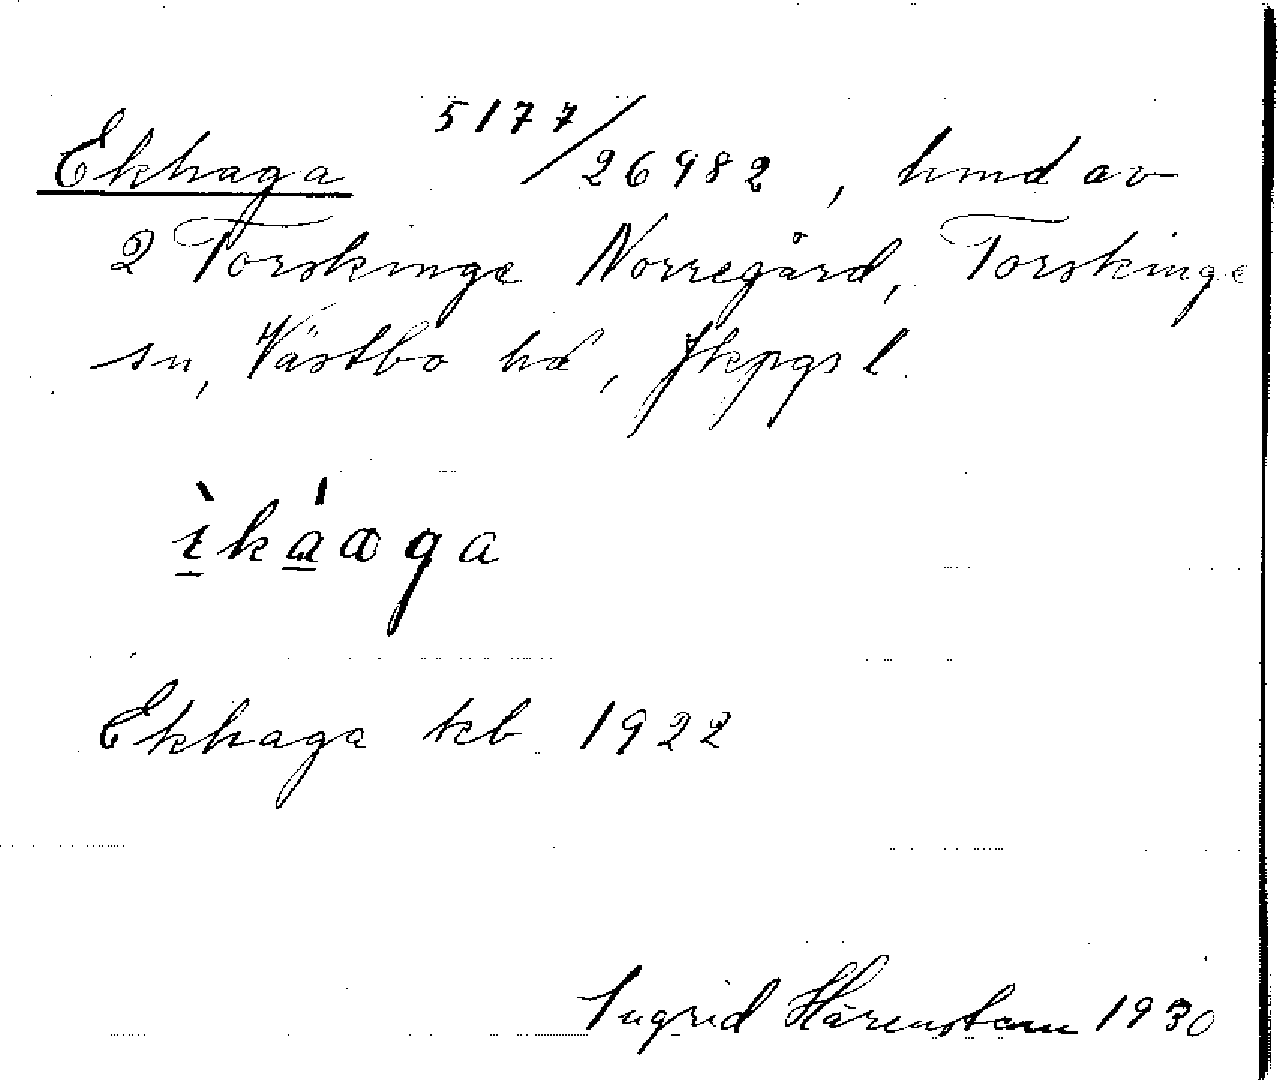 Ekhaga 5177/26982, hmd av
2 Torskinge Norregård, Torskinge
sn, Västbo hd, Jkpgs l.
ìkáaga
Ekhaga kb 1922
Ingrid Härenstam 1930